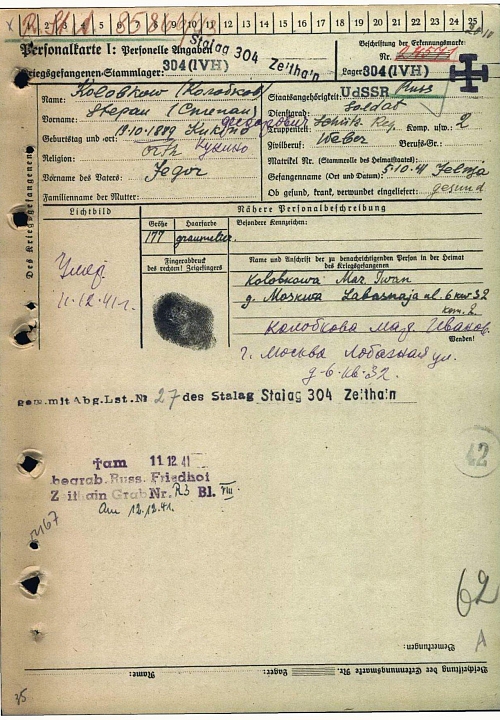 X 1 2 3 4 5 6 7 8 9 10 11 12 13 14 15 16 17 18 19 20 21 22 23 24 25
Personalkarte I: Personelle Angaben
Stalag 304 Zeithain
Beschriftung der Erkennungsmarke
Kriegsgefangenen-Stammlager: 304 (IVH)
Nr.
Lager 304 (IVH)
Name: Kolobkow (Колобков)
Staatsangehörigkeit: UdSSR Russ
Vorname: Stepan (Степан)
Dienstgrad: Soldat
Truppenteil: Schütz. Reg. Komp. usw.: 2
Geburtstag und -ort: 19.10.1889 Kukino
Кукино
Zivilberuf: Weber Berufs-Gr.:
Religion: orth
Matrikel Nr. (Stammrolle des Heimatstaates):
Vorname des Vaters: Jegor
Gefangennahme (Ort und Datum): 5.10.41 Jelnja
Familienname der Mutter:
Ob gesund, krank, verwundet eingeliefert: gesund
Des Kriegsgefangenen
Lichtbild
Nähere Personalbeschreibung
Größe
Haarfarbe
Besondere Kennzeichen:
177
graumeliert
Fingerabdruck
des rechten! Zeigefingers
Name und Anschrift der zu benachrichtigenden Person in der Heimat
des Kriegsgefangenen
Умер
11.12.41г.
Kolobkowa Mar. Iwan
g. Moskwa Labasnaja ul. 6 kw 32
Колобкова Мар. Иванов.
Wenden!
г. Москва Лобазная ул.
д-6. кв. 32.
gem. mit Abg. Lst. № 27 des Stalag Stalag 304 Zeithain
42
†am 11.12.41
begrab. Russ. Friedhof
Zeithain Grab Nr. R3 Bl. VIII
Am 12.12.41.
62
A
Bemerkungen:
Beschriftung der Erkennungsmarke Nr. Lager: Name:
35